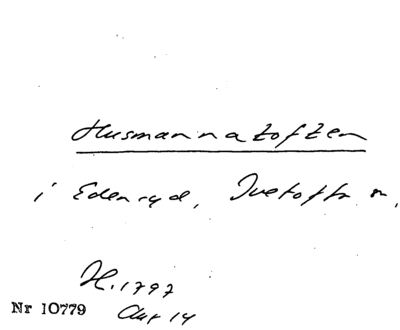 Husmannatoften
i Edenryd, Ivetofta sn,
H. 1797
Nr 10779 Akt 14